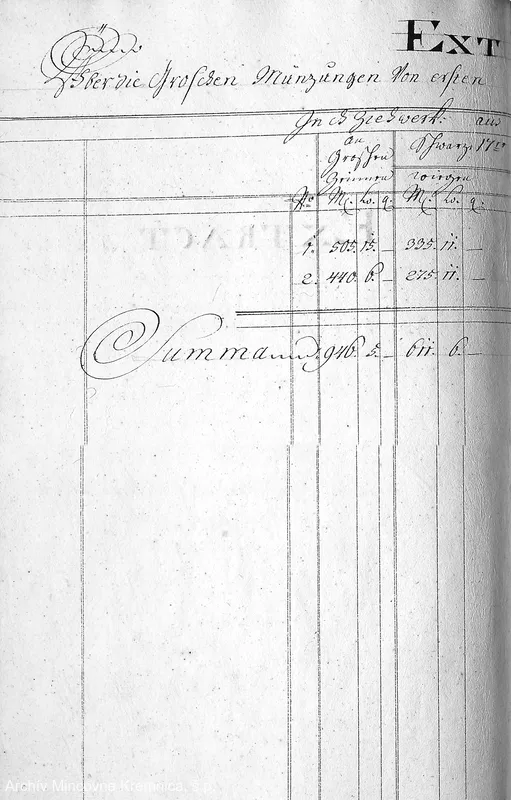 EXT
Über die Groschen Münzungen Von ersten
In dz Ziehwerk aus
an Schwarze 17
Groschen
Zeinnen wiegen
No M. Lo. q. M. Lo. q.
1. 505. 15. — 335. 11. —
2. 440. 6. — 275. 11. —
Summa 946. 5. — 611. 6. —
Archív Mincovne Kremnica, š.p.